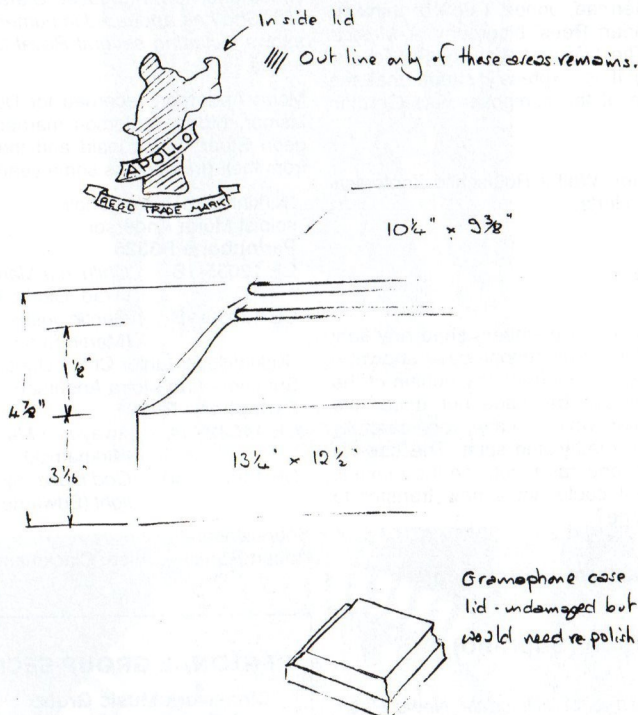 In side lid
//// Out line only of these areas remains.
APOLLO
REGD TRADE MARK
10¼" × 9⅜"
½"
4⅞"
3 1/16"
13¼" × 12½
Gramophone case
lid - undamaged but
would need re polish